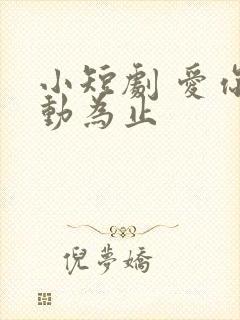 小短劇 愛你
動為止
倪夢嬌